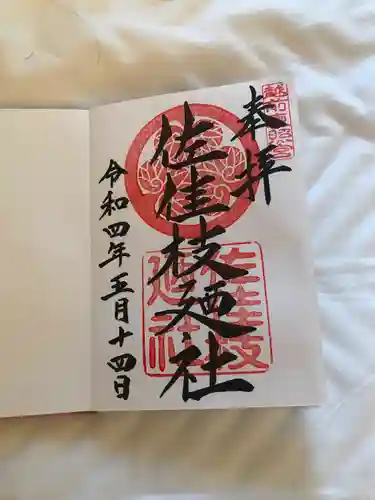 奉拝
佐佳枝廼社
令和四年五月十四日
佐佳枝
廼社